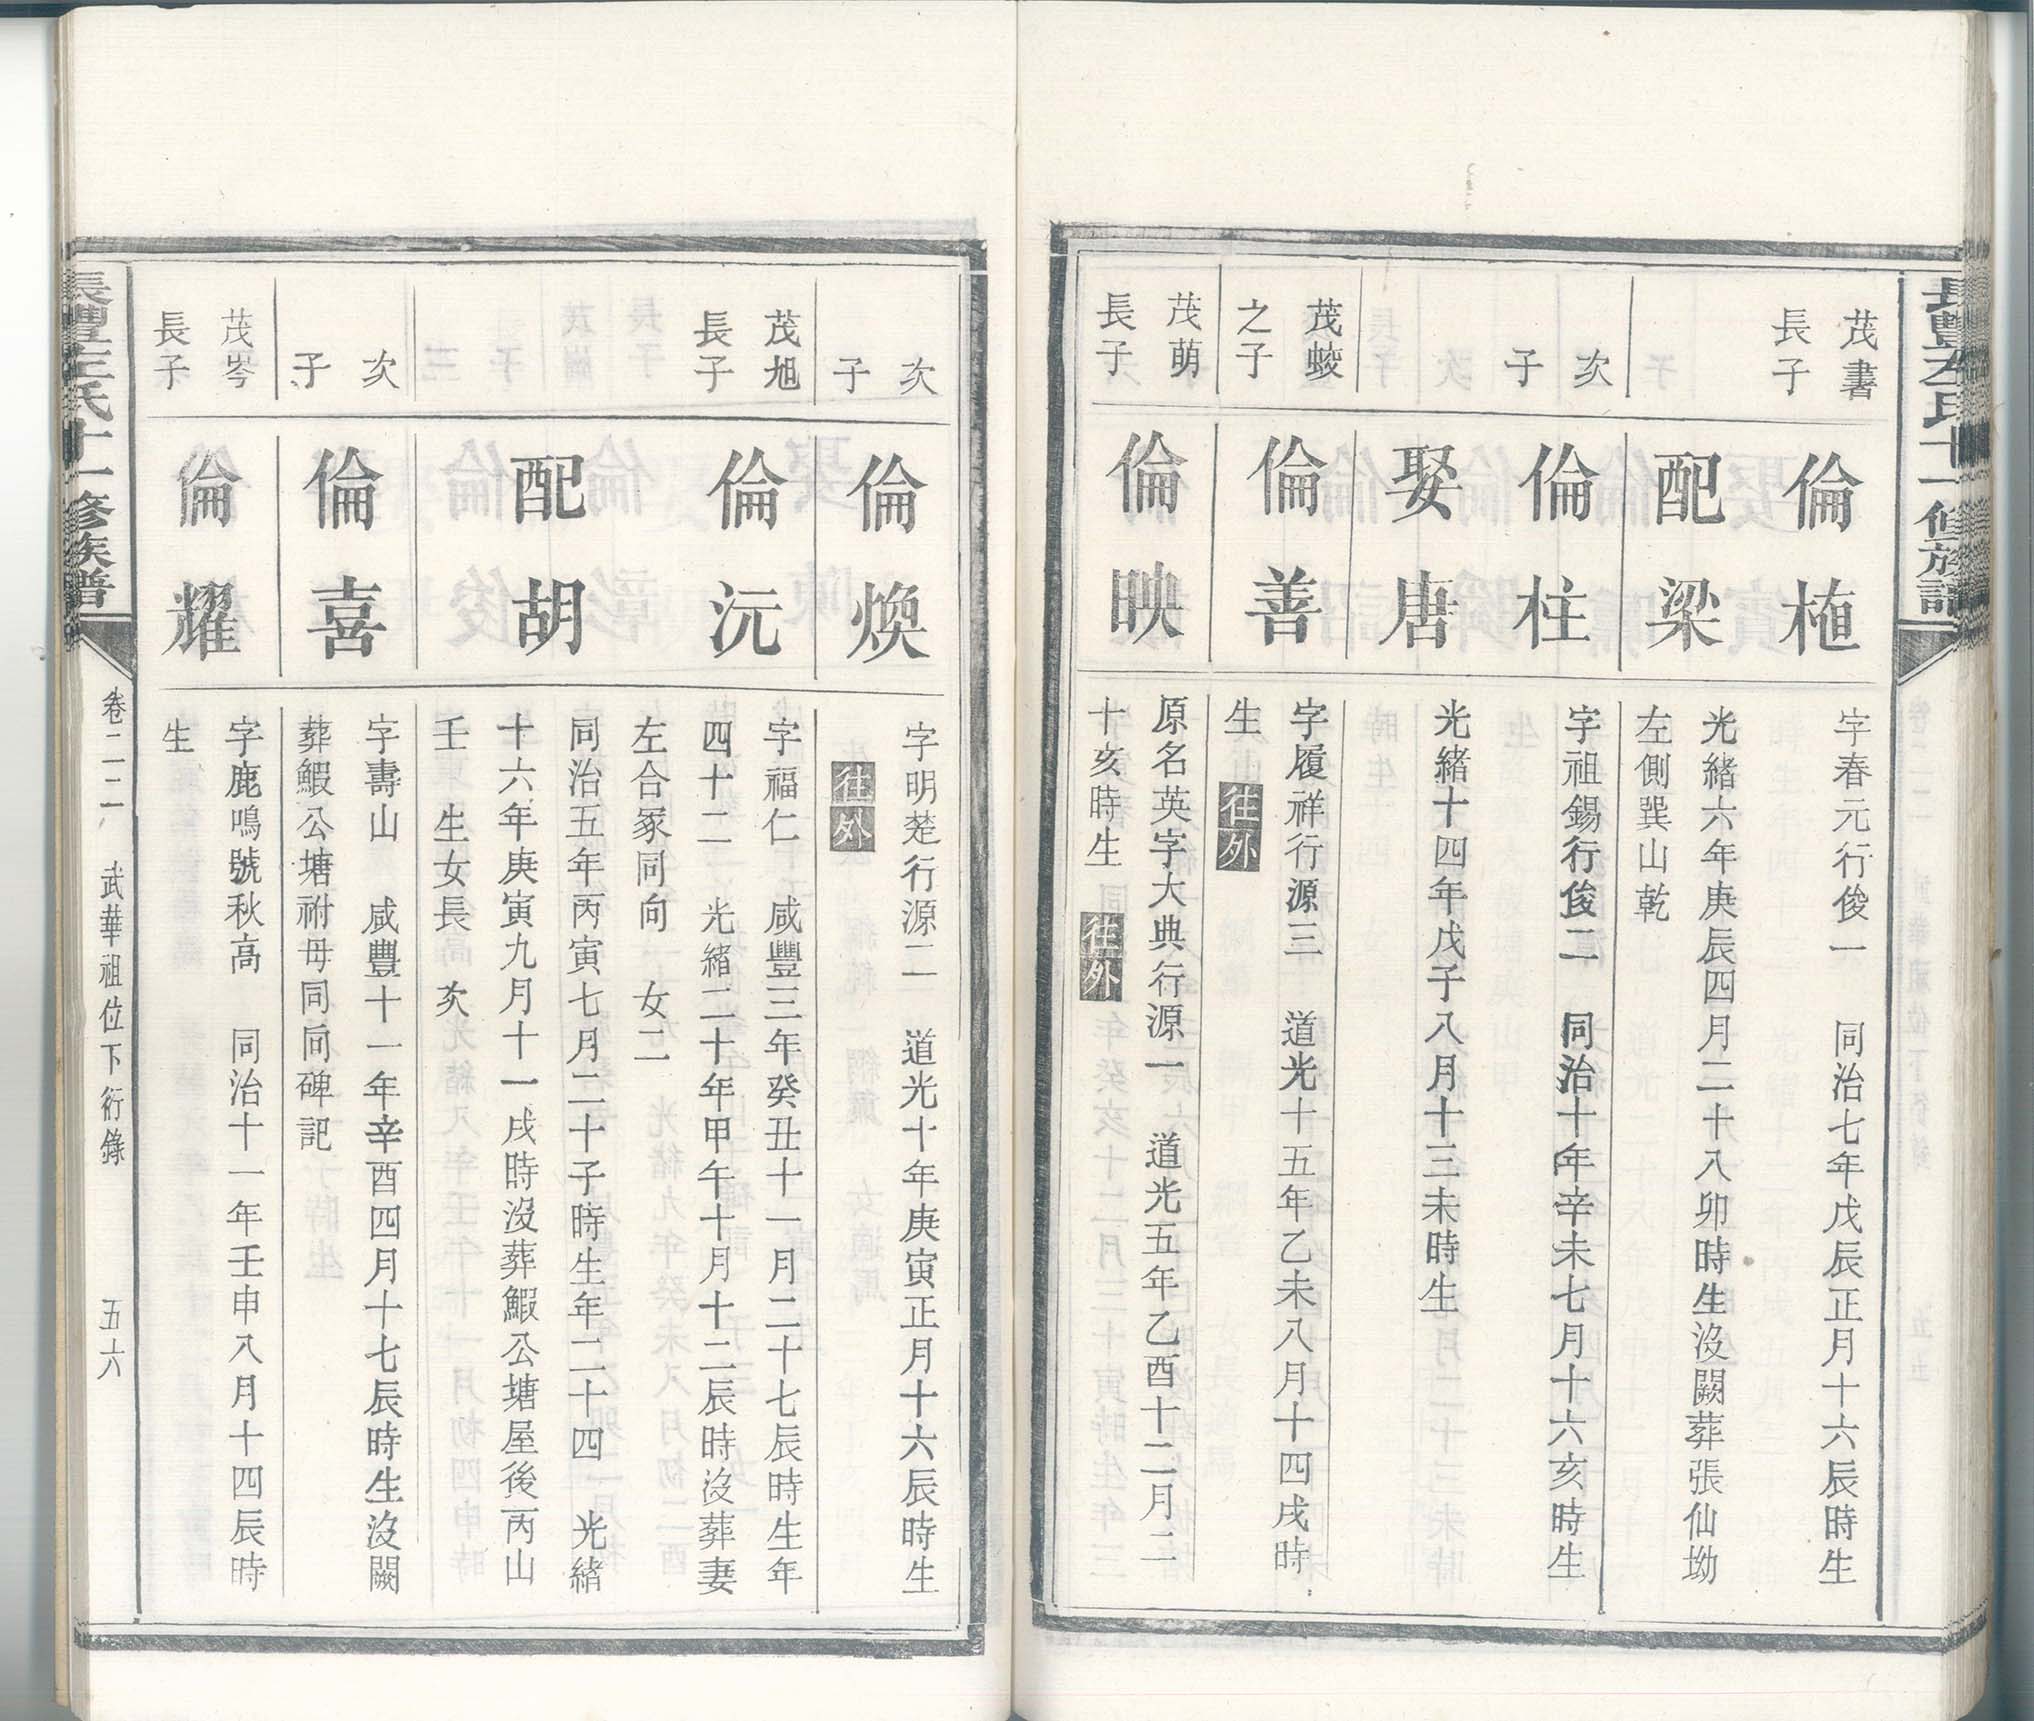 長豐左氏十一修族譜
茂書
長子
倫柂
字春元行俊一　同治七年戊辰正月十六辰時生
配梁
光緒六年庚辰四月二十八卯時生沒闕葬張仙坳
左側巽山乾
次
子
倫柱
字祖錫行俊二　同治十年辛未七月十六亥時生
娶唐
光緒十四年戊子八月十三未時生
茂蛟
之子
倫善
字履祥行源三　道光十五年乙未八月十四戌時
生　往外
茂萌
長子
倫映
原名英字大典行源一　道光五年乙酉十二月二
十亥時生　往外
次
子
倫煥
字明楚行源二　道光十年庚寅正月十六辰時生
往外
茂旭
長子
倫沅
字福仁　咸豐三年癸丑十一月二十七辰時生年
四十二　光緒二十年甲午十月十二辰時沒葬妻
左合冢同向　女二
配胡
同治五年丙寅七月二十子時生年二十四　光緒
十六年庚寅九月十一戌時沒葬鰕公塘屋後丙山
壬　生女長　次
次
子
倫喜
字壽山　咸豐十一年辛酉四月十七辰時生沒闕
葬鰕公塘祔母同向碑記
茂岑
長子
倫耀
字鹿鳴號秋高　同治十一年壬申八月十四辰時
生
長豐左氏十一修族譜
卷二二　武華祖位下衍錄　五六